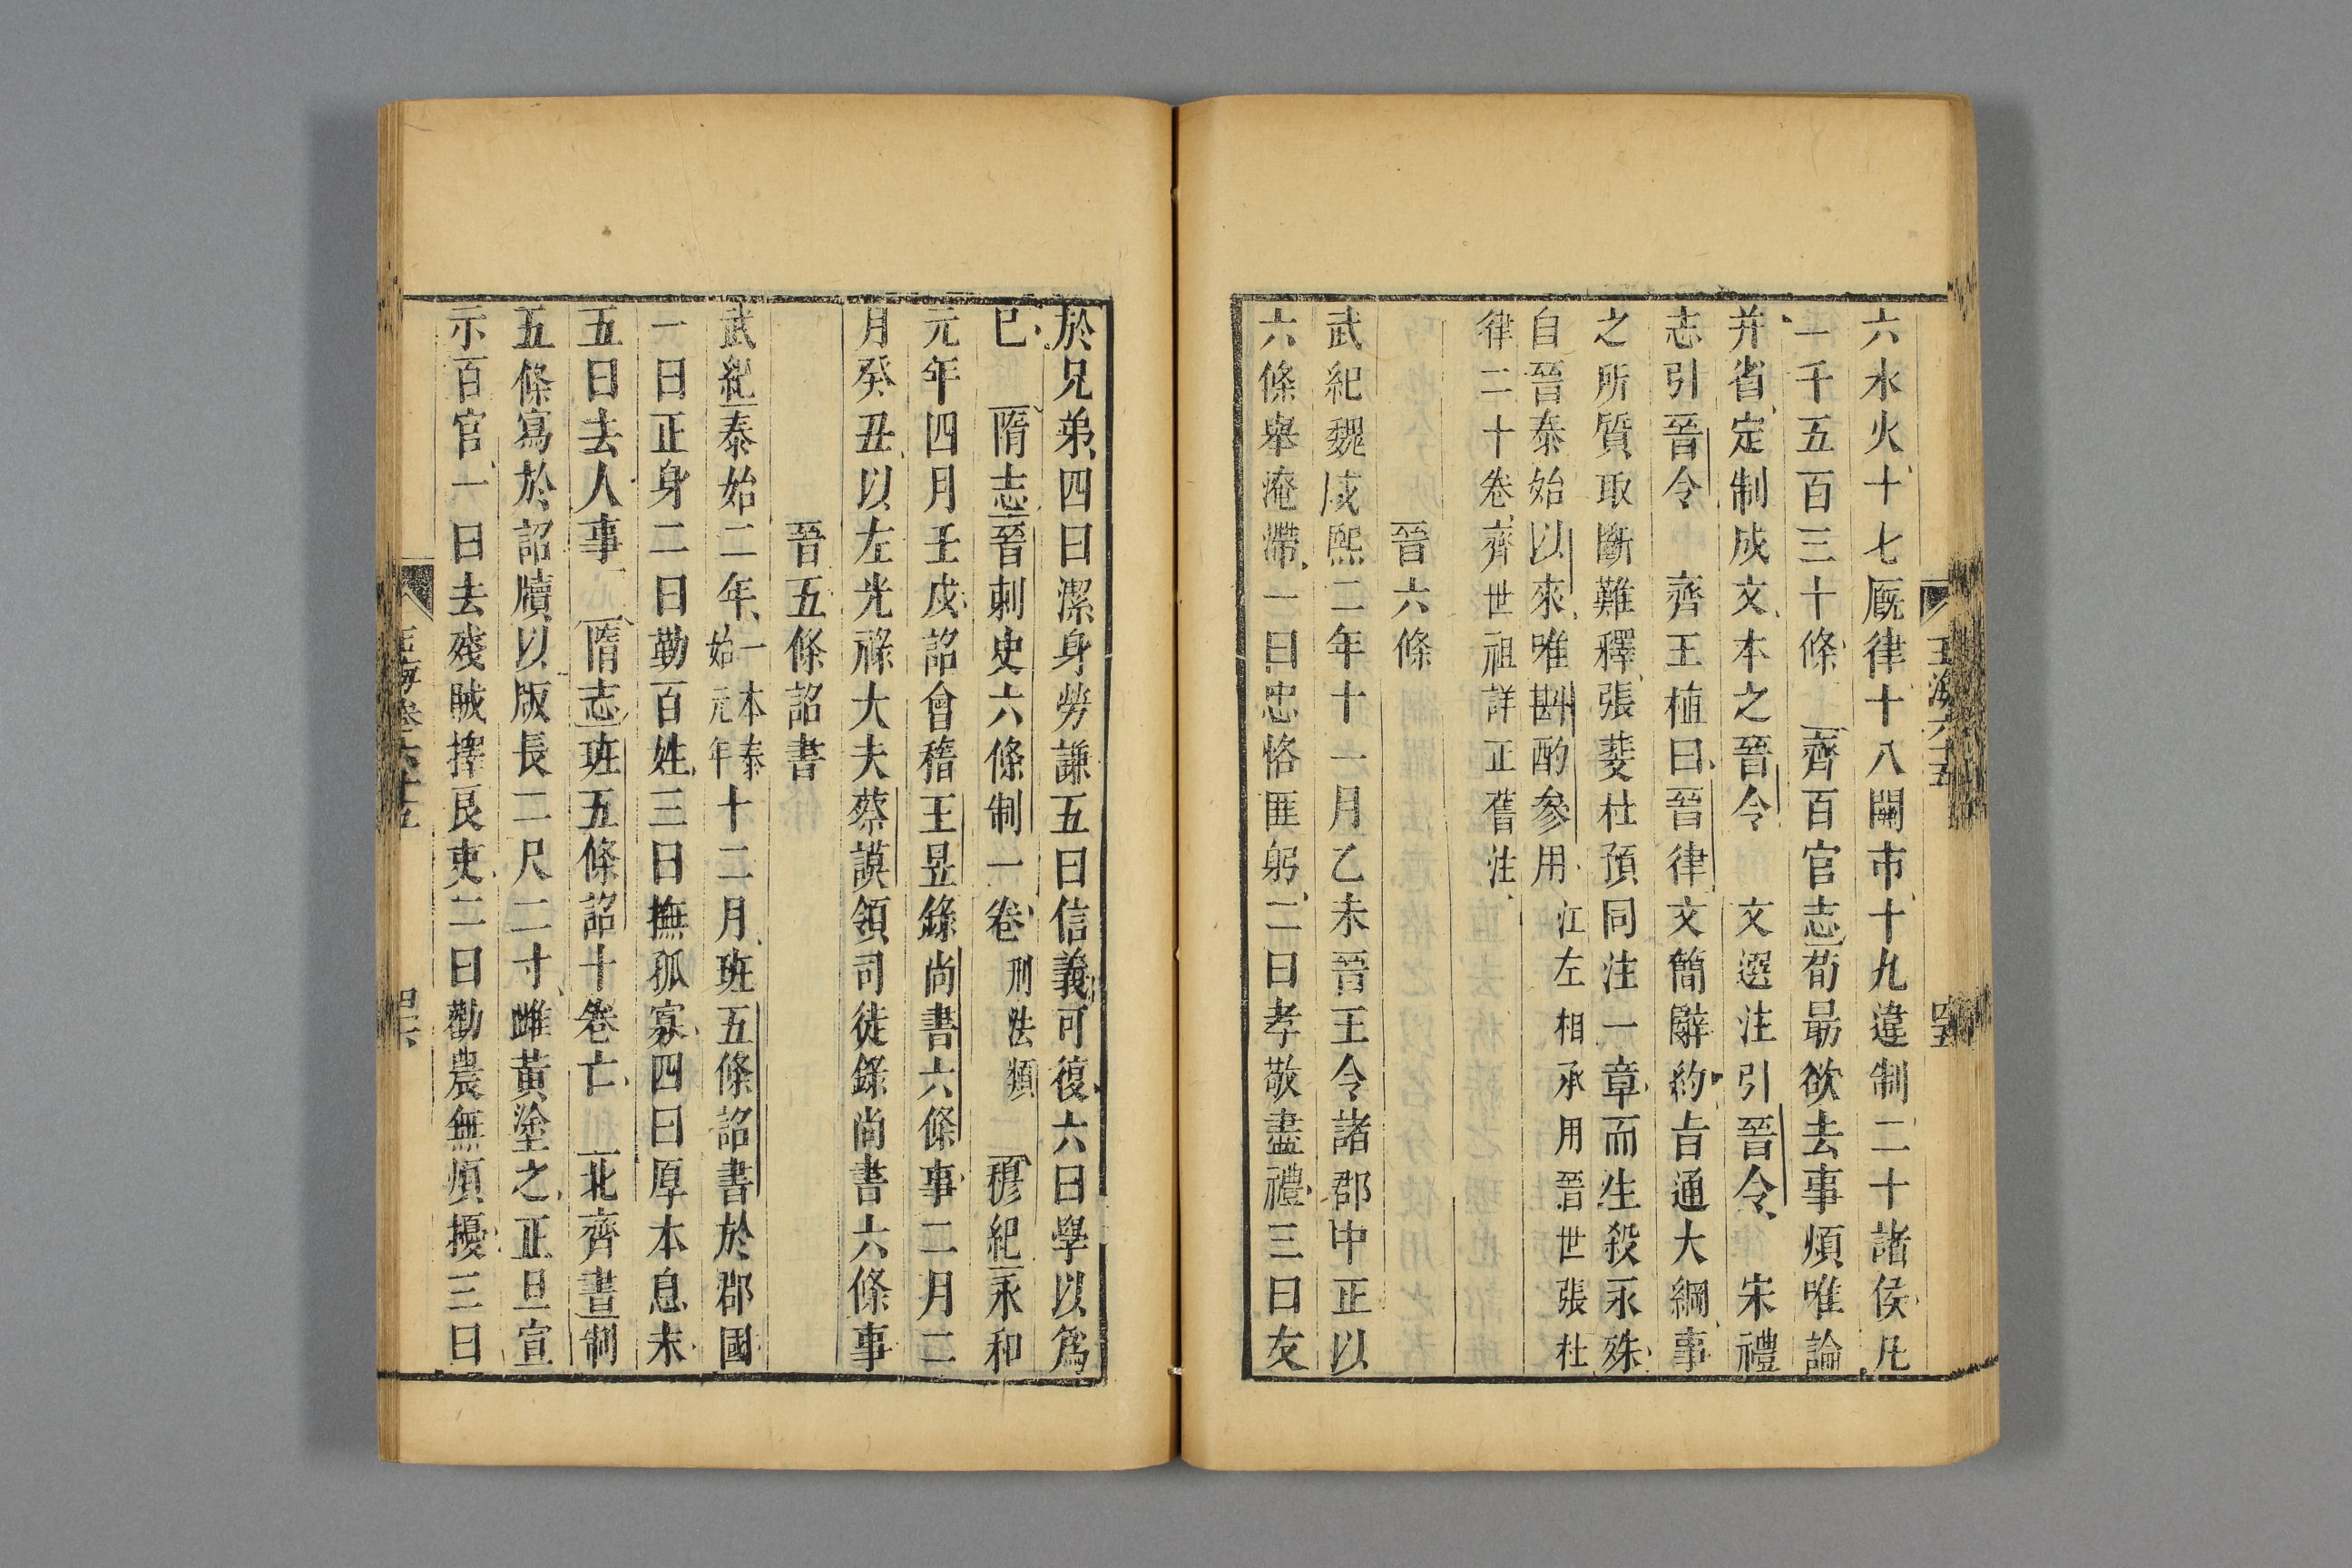 玉海六十五 四十五
六水火十七厩律十八關市十九違制二十諸侯凡
一千五百三十條 齊百官志荀勗欲去事煩唯論
并省定制成文本之晉令 文選注引晉令 宋禮
志引晉令 齊王植曰晉律文簡辭約旨通大綱事
之所質取斷難釋張斐杜預同注一章而生殺永殊
自晉泰始以來唯斟酌參用 江左相承用晉世張杜
律二十卷齊世祖詳正舊注
晉六條
武紀魏咸熙二年十一月乙未晉王令諸郡中正以
六條舉淹滯一曰忠恪匪躬二曰孝敬盡禮三曰友
於兄弟四曰潔身勞謙五曰信義可復六曰學以爲
巳 隋志晉刺史六條制一卷 刑法類 穆紀永和
元年四月壬戌詔會稽王昱錄尚書六條事二月二
月癸丑以左光祿大夫蔡謨領司徒錄尚書六條事
晉五條詔書
武紀泰始二年 一本泰始元年 十二月班五條詔書於郡國
一曰正身二曰勤百姓三曰撫孤寡四曰厚本息末
五曰去人事 隋志班五條詔十卷亡 北齊書制
五條寫於詔牘以版長二尺二寸雌黃塗之正旦宣
示百官一曰去殘賊擇良吏二曰勸農無煩擾三曰
玉海卷六十五